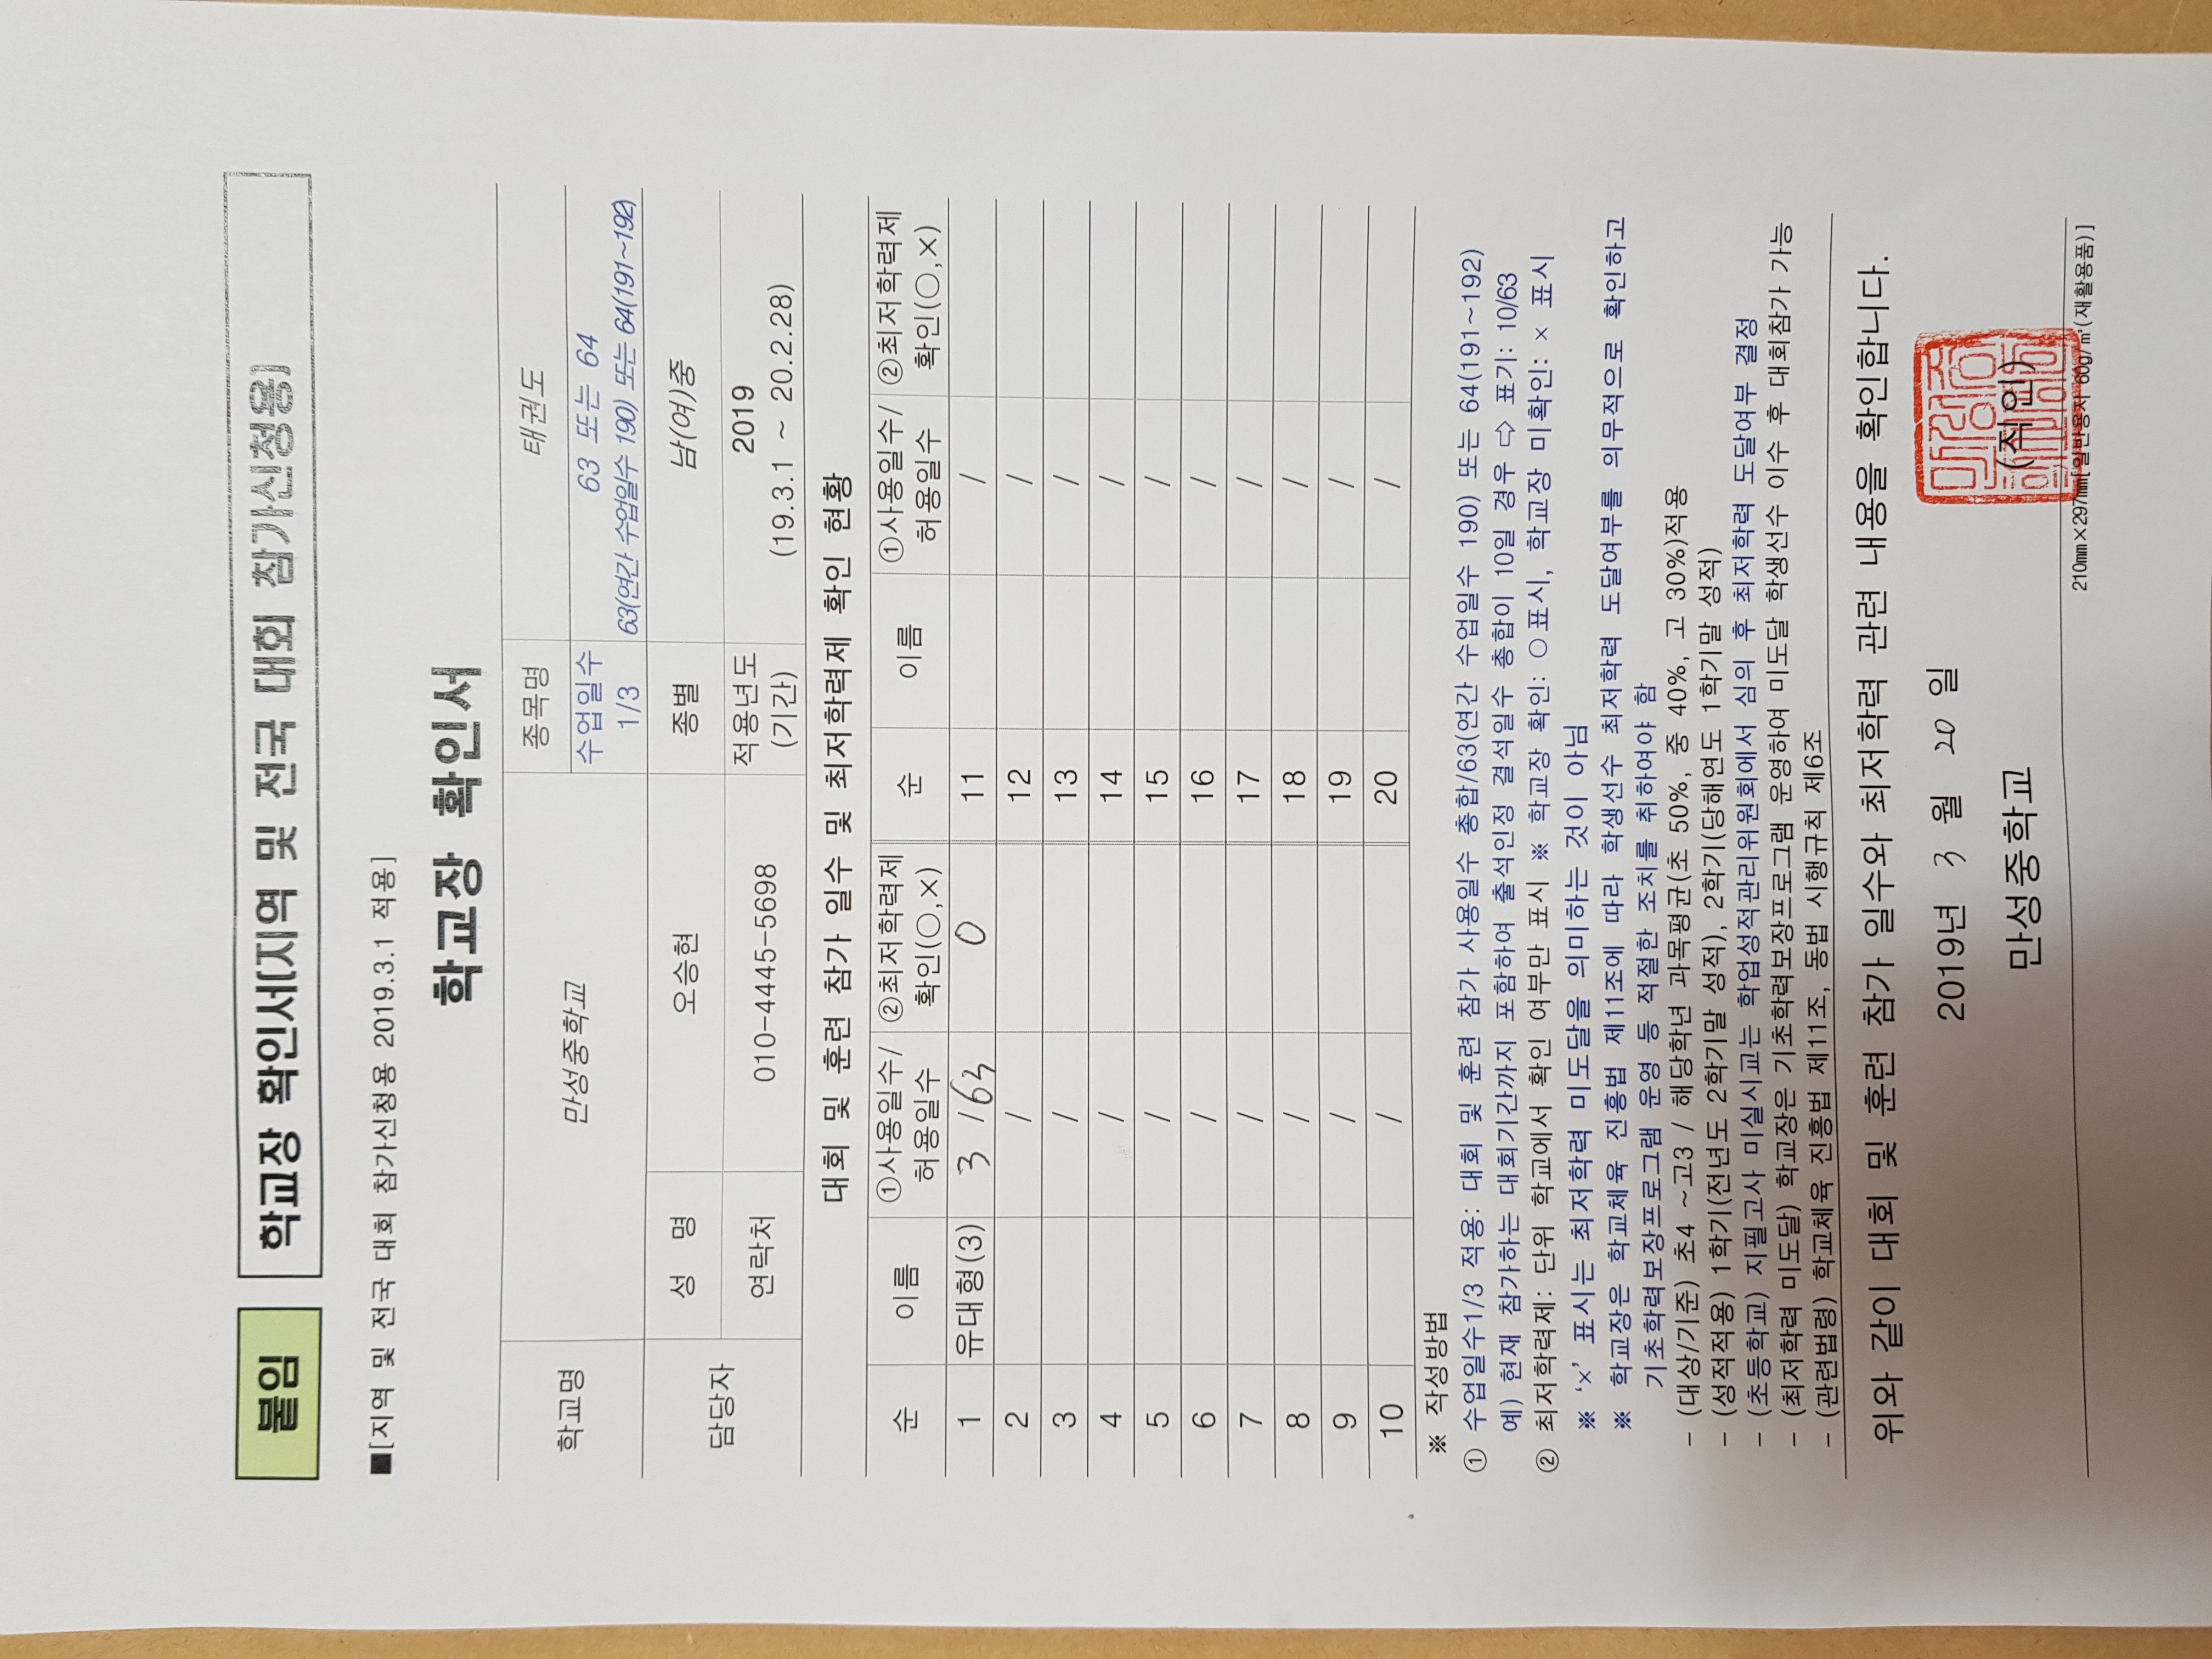 붙임
학교장 확인서[지역 및 전국 대회 참가신청용]
■[지역 및 전국 대회 참가신청용 2019.3.1 적용]
학교장 확인서
학교명 만성중학교 종목명 태권도
수업일수 1/3 63 또는 64
63(연간 수업일수 190) 또는 64(191~192)
담당자 성 명 오승현 종별 남(여)중
연락처 010-4445-5698 적용년도 (기간) 2019
(19.3.1 ~ 20.2.28)
대회 및 훈련 참가 일수 및 최저학력제 확인 현황
순 이름 ①사용일수/허용일수 ②최저학력제 확인(○,×) 순 이름 ①사용일수/허용일수 ②최저학력제 확인(○,×)
1 유대형(3) 3 / 63 O 11 /
2 / 12 /
3 / 13 /
4 / 14 /
5 / 15 /
6 / 16 /
7 / 17 /
8 / 18 /
9 / 19 /
10 / 20 /
※ 작성방법
① 수업일수1/3 적용: 대회 및 훈련 참가 사용일수 총합/63(연간 수업일수 190) 또는 64(191~192)
예) 현재 참가하는 대회기간까지 포함하여 출석인정 결석일수 총합이 10일 경우 ⇨ 표기: 10/63
② 최저학력제: 단위 학교에서 확인 여부만 표시 ※ 학교장 확인: ○표시, 학교장 미확인: × 표시
※ ‘×’ 표시는 최저학력 미도달을 의미하는 것이 아님
※ 학교장은 학교체육 진흥법 제11조에 따라 학생선수 최저학력 도달여부를 의무적으로 확인하고
기초학력보장프로그램 운영 등 적절한 조치를 취하여야 함
- (대상/기준) 초4 ~고3 / 해당학년 과목평균(초 50%, 중 40%, 고 30%)적용
- (성적적용) 1학기(전년도 2학기말 성적), 2학기(당해연도 1학기말 성적)
- (초등학교) 지필고사 미실시교는 학업성적관리위원회에서 심의 후 최저학력 도달여부 결정
- (최저학력 미도달) 학교장은 기초학력보장프로그램 운영하여 미도달 학생선수 이수 후 대회참가 가능
- (관련법령) 학교체육 진흥법 제11조, 동법 시행규칙 제6조
위와 같이 대회 및 훈련 참가 일수와 최저학력 관련 내용을 확인합니다.
2019년 3 월 20 일
만성중학교 (직인)
210mm×297mm[일반용지 60g/㎡(재활용품)]